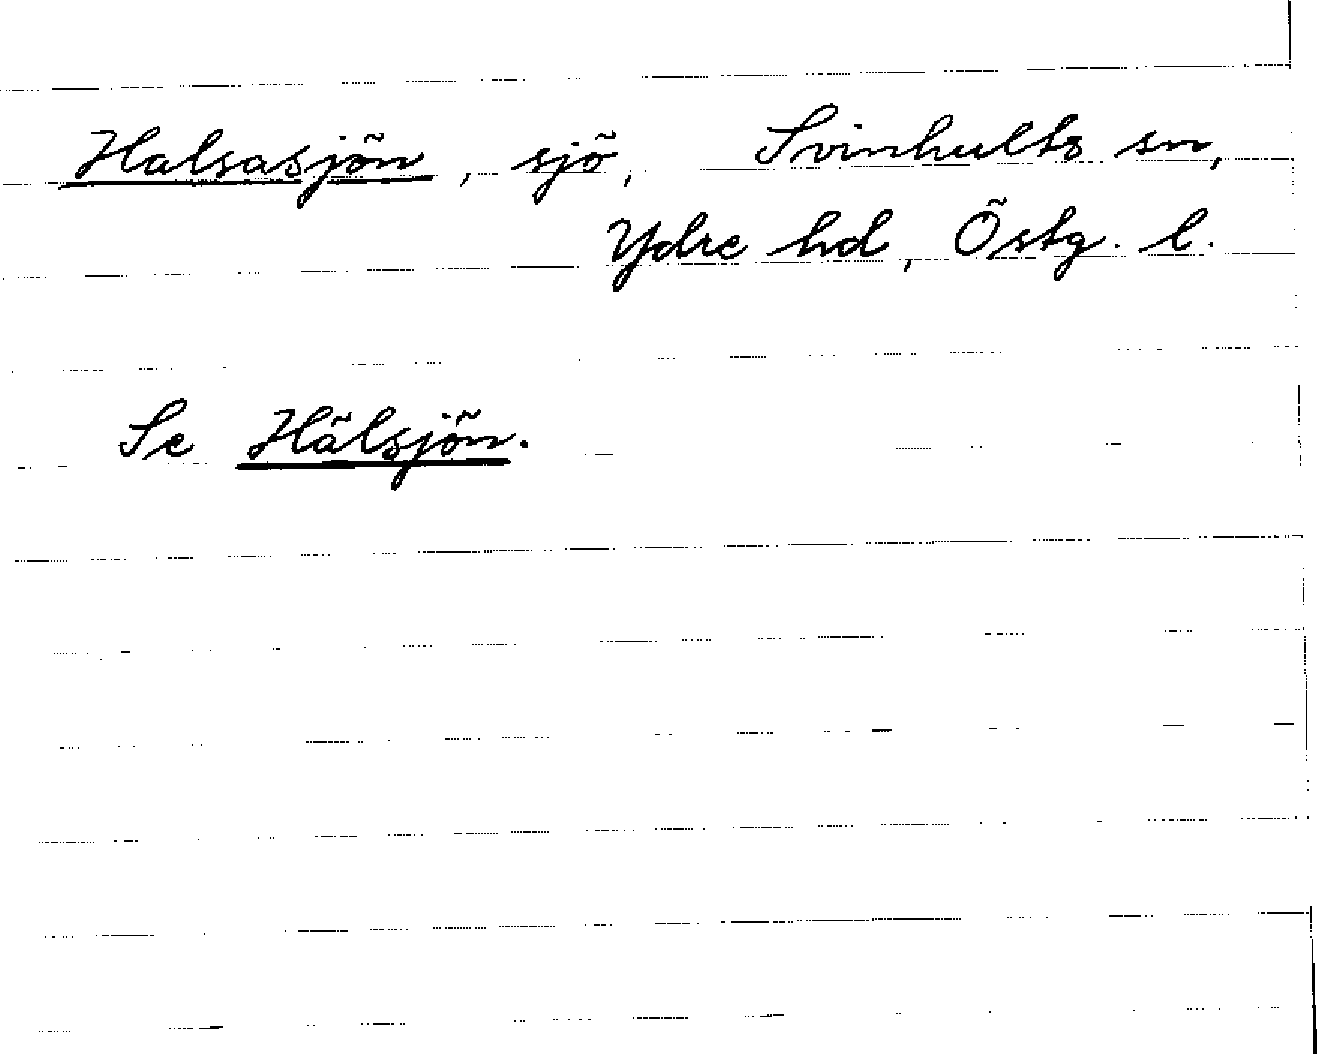 Halsasjön, sjö, Svinhults sn,
Ydre hd, Östg. l.
Se Hälsjön.